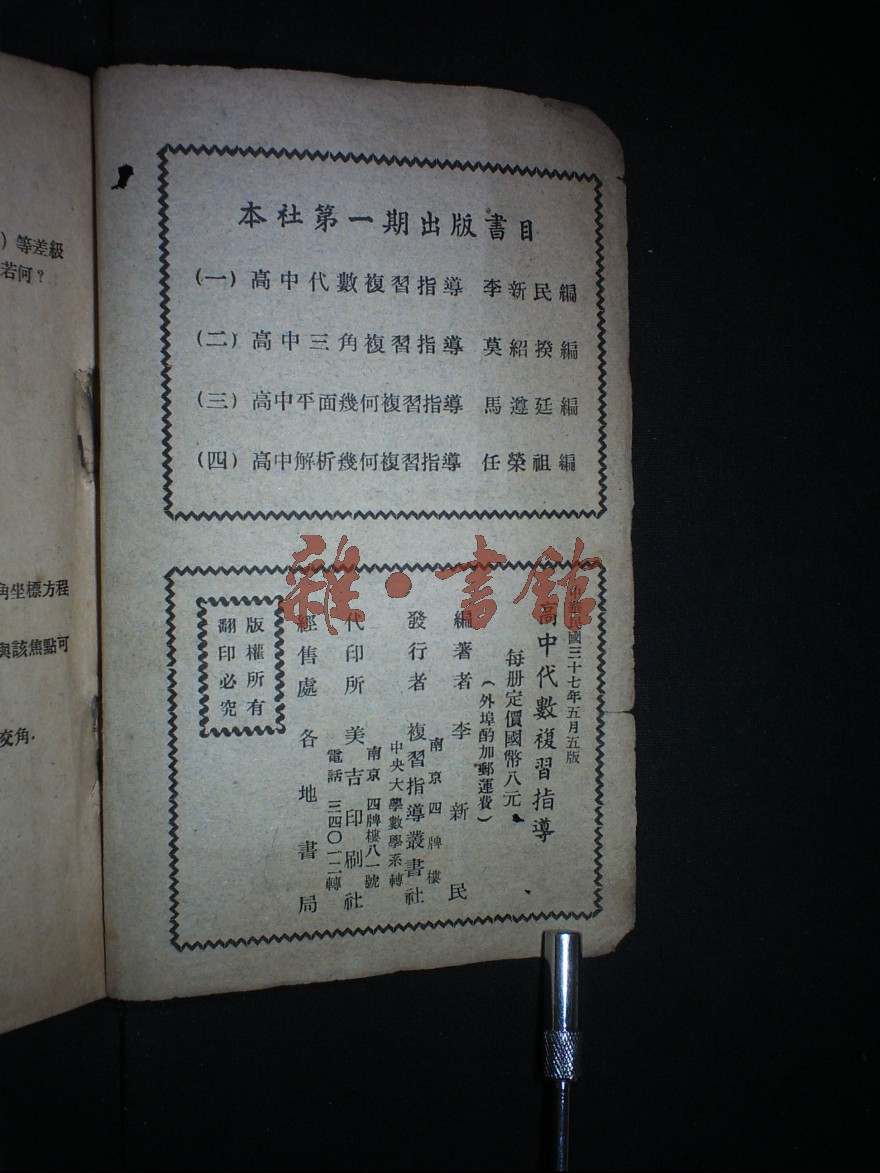 ）等差級
若何？
角坐標方程
與該焦點可
交角．
本社第一期出版書目
（一）高中代數複習指導　李新民編
（二）高中三角複習指導　莫紹揆編
（三）高中平面幾何複習指導　馬遵廷編
（四）高中解析幾何複習指導　任榮祖編
雜·書館
中華民國三十七年五月五版
高中代數複習指導
每册定價國幣八元
（外埠酌加郵運費）
編著者　李新民
南京四牌樓
發行者　複習指導叢書社
中央大學數學系轉
南京四牌樓八一號
代印所　美吉印刷社
電話三四〇一二轉
經售處　各地書局
版權所有
翻印必究